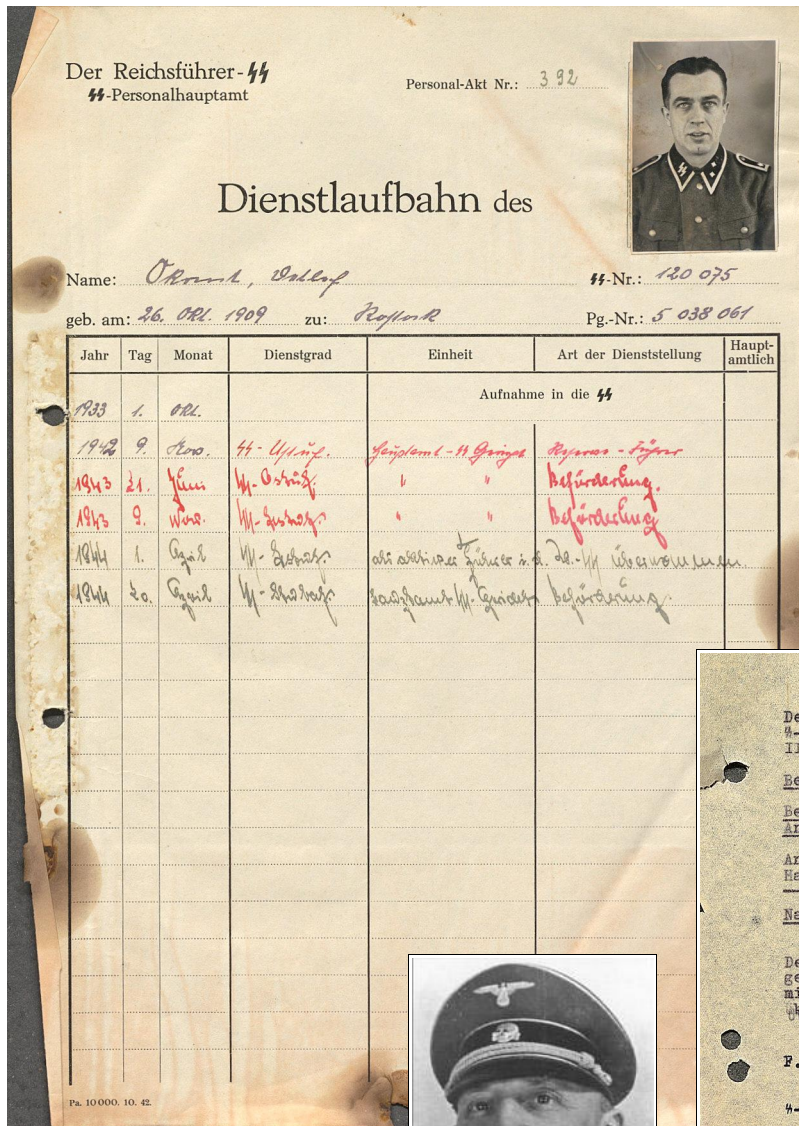 Der Reichsführer-SS
SS-Personalhauptamt
Personal-Akt Nr.: 392
Dienstlaufbahn des
Name: Okrent, Detlef
SS-Nr.: 120 075
geb. am: 26. Okt. 1909 zu: Rostock
Pg.-Nr.: 5 038 061
Jahr Tag Monat Dienstgrad Einheit Art der Dienststellung Haupt-
amtlich
Aufnahme in die SS
1933 1. Okt.
1942 9. Nov. SS-Ustuf. Hauptamt-SS Gericht -Führer
1943 21. Juni SS-Ostuf. " " Beförderung.
1943 9. Nov. SS- " " Beförderung
1944 1. April SS- als aktiver Führer i. d. SS übernommen.
1944 20. April SS- Hauptamt SS-Gericht Beförderung.
De
SS-
II
Be
Be
Ar
Ar
Ha
Na
De
ge
mi
F.
SS-
Pa. 10 000. 10. 42.